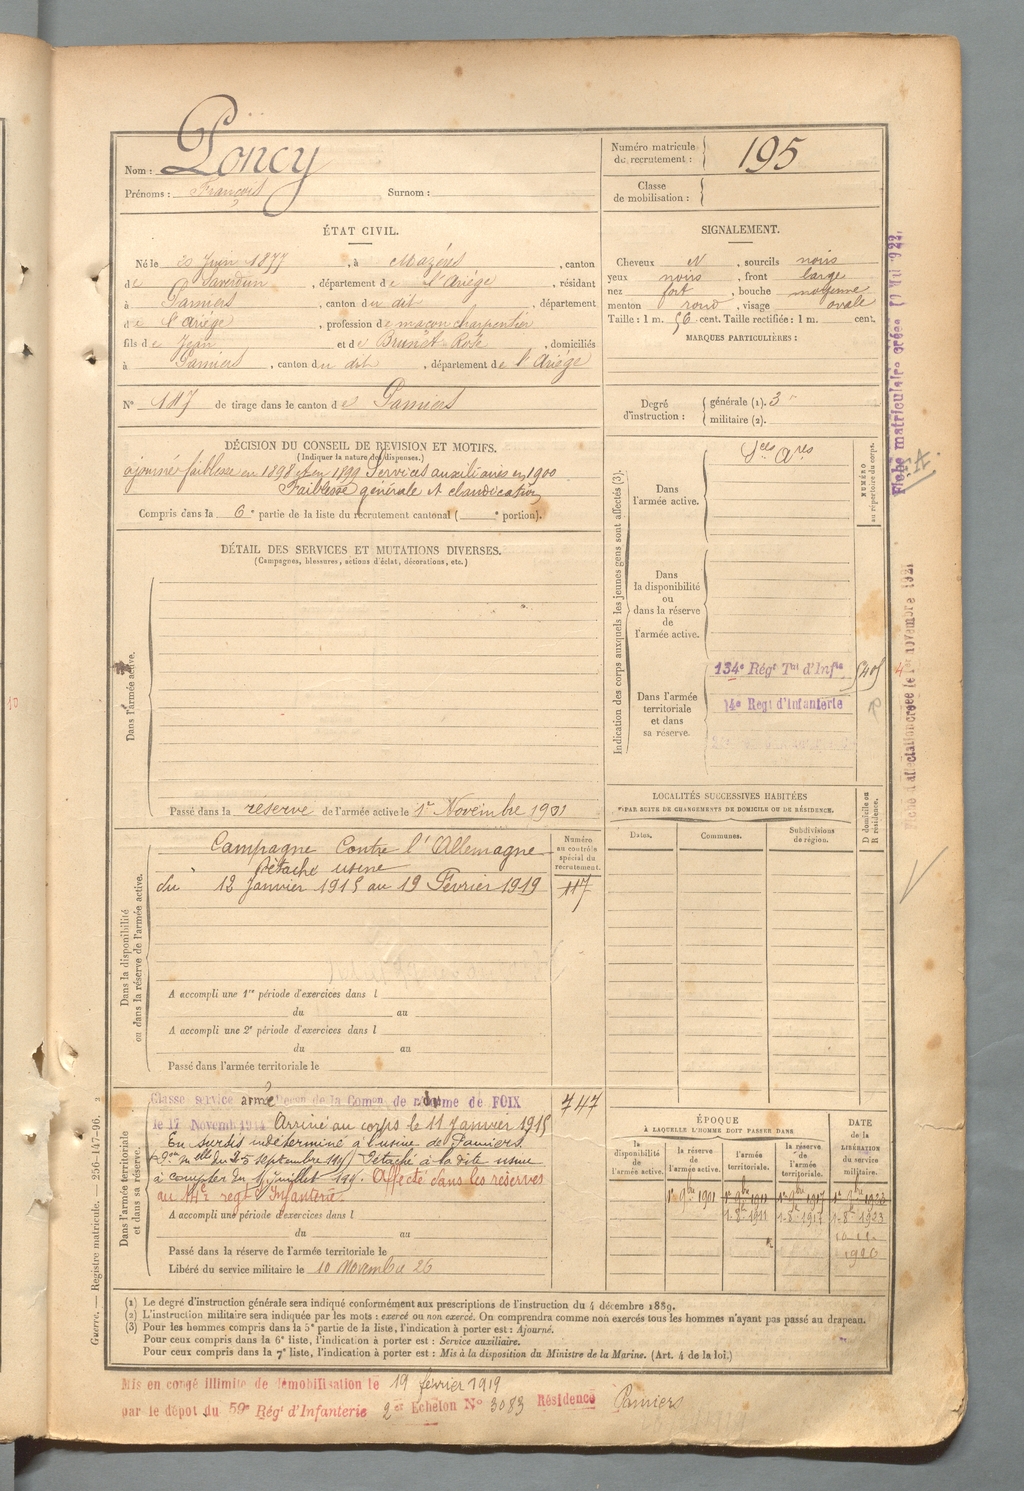 Nom : Poncy
Prénoms : François Surnom :
Numéro matricule
du recrutement : 195
Classe
de mobilisation :
ÉTAT CIVIL.
Né le 20 Juin 1877, à Mazéres, canton
de Saverdun, département de l'Ariége, résidant
à Pamiers, canton du dit, département
de l'Ariége, profession de maçon charpentier
fils de Jean et de Brunet Rose, domiciliés
à Pamiers, canton du dit, département de l'Ariége
N° 117 de tirage dans le canton de Pamiers
SIGNALEMENT.
Cheveux N, sourcils noirs
yeux noirs, front large
nez fort, bouche moyenne
menton rond, visage ovale
Taille : 1 m. 56 cent. Taille rectifiée : 1 m. cent.
MARQUES PARTICULIÈRES :
Degré
d'instruction :
générale (1). 3
militaire (2).
DÉCISION DU CONSEIL DE REVISION ET MOTIFS.
(Indiquer la nature des dispenses.)
ajourné faiblesse en 1898 et en 1899 Services auxiliaires en 1900
Faiblesse générale et claudication
Compris dans la 6e partie de la liste du recrutement cantonal ( e portion).
DÉTAIL DES SERVICES ET MUTATIONS DIVERSES.
(Campagnes, blessures, actions d'éclat, décorations, etc.)
Dans l'armée active.
Passé dans la réserve de l'armée active le 1er Novembre 1901
Indication des corps auxquels les jeunes gens sont affectés (3).
NUMÉRO
au répertoire du corps.
Dans
l'armée active.
Dans
la disponibilité
ou
dans la réserve
de
l'armée active.
Dans l'armée
territoriale
et dans
sa réserve.
134e Régt Tal d'Infie
14e Regt d'Infanterie
Dans la disponibilité
ou dans la réserve de l'armée active.
Campagne Contre l'Allemagne
Détaché usine
du 12 Janvier 1915 au 19 Février 1919
Numéro
au contrôle
spécial du
recrutement.
117
A accompli une 1re période d'exercices dans l
du au
A accompli une 2e période d'exercices dans l
du au
Passé dans l'armée territoriale le
LOCALITÉS SUCCESSIVES HABITÉES
PAR SUITE DE CHANGEMENTS DE DOMICILE OU DE RÉSIDENCE.
Dates. Communes. Subdivisions
de région.
D domicile ou
R résidence.
Dans l'armée territoriale
et dans sa réserve.
Classé service armé de la Comon de de FOIX
le 17 Novemb 1914 Arrivé au corps le 11 Janvier 1915
En sursis indéterminé à l'usine de Pamiers
du 25 septembre 1915) Détaché à la dite usine
à compter du 1 juillet 191. Affecté dans les réserves
au 14e regt d'Infanterie.
747
A accompli une période d'exercices dans l
du au
Passé dans la réserve de l'armée territoriale le
Libéré du service militaire le 10 Novembre 26
ÉPOQUE
À LAQUELLE L'HOMME DOIT PASSER DANS
la
disponibilité
de
l'armée active.
la réserve
de
l'armée active.
l'armée
territoriale.
la réserve
de
l'armée
territoriale.
DATE
de la
LIBÉRATION
du service
militaire.
1er 9bre 1901
1-8-1911
1-8-1923
1926
(1) Le degré d'instruction générale sera indiqué conformément aux prescriptions de l'instruction du 4 décembre 1889.
(2) L'instruction militaire sera indiquée par les mots : exercé ou non exercé. On comprendra comme non exercés tous les hommes n'ayant pas passé au drapeau.
(3) Pour les hommes compris dans la 5e partie de la liste, l'indication à porter est : Ajourné.
Pour ceux compris dans la 6e liste, l'indication à porter est : Service auxiliaire.
Pour ceux compris dans la 7e liste, l'indication à porter est : Mis à la disposition du Ministre de la Marine. (Art. 4 de la loi.)
Mis en congé illimité de démobilisation le 19 février 1919
par le dépot du 59e Régt d'Infanterie 2e Echelon N° 3083 Résidence Pamiers
Guerre. — Registre matricule. — 256-147-96.
Fiche matriculaire créée 1922.
Fiche d'affectation créée le 1er novembre 1921